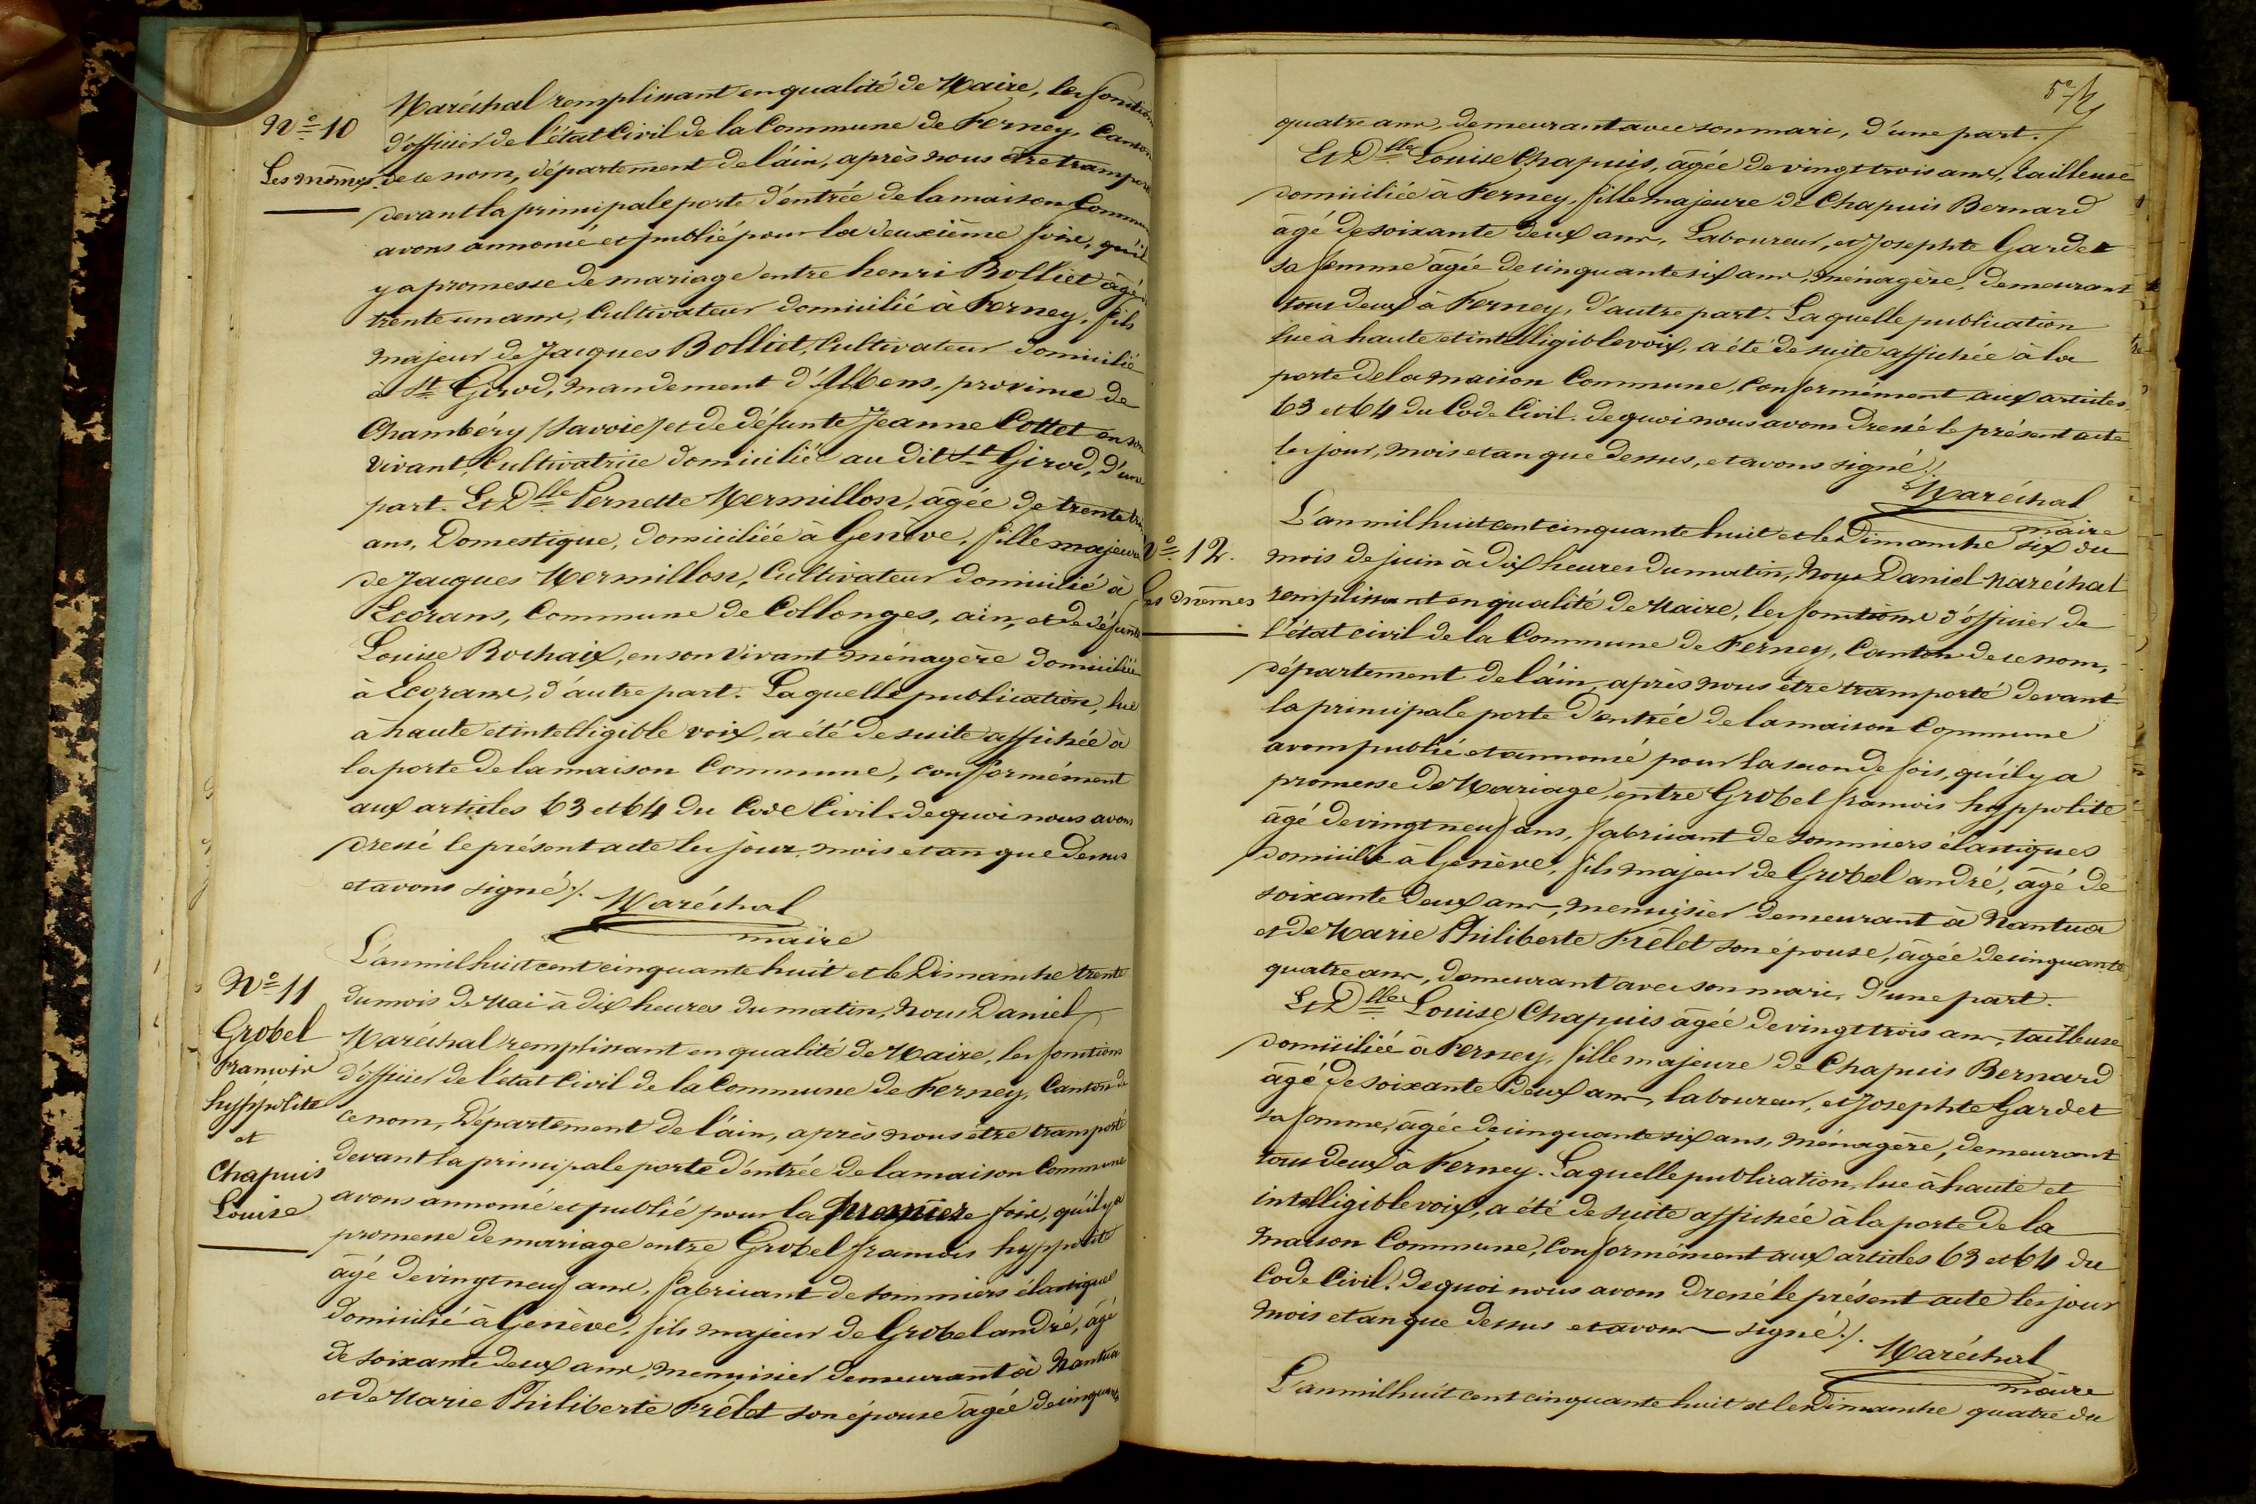 Maréchal remplissant en qualité de Maire, les fonctions
N° 10
d'officier de l'état Civil de la Commune de Ferney, Canton
Les mêmes
de ce nom, département de l'ain, après nous être transporté
devant la principale porte d'entrée de la maison Commune
avons annoncé et publié pour la deuxième fois, qu'il
y a promesse de mariage entre henri Bolliet âgé
trente un ans, Cultivateur domicilié à Ferney, fils
majeur de Jacques Bolliet, Cultivateur domicilié
à St Girod, mandement d'Albens, province de
Chambéry (Savoie) et de défunte Jeanne Cottet en son
vivant, Cultivatrice domiciliée au dit St Girod, d'une
part. Et Dlle Pernette Mermillon, âgée de trente
ans, Domestique, domiciliée à Genève, fille majeure
de Jacques Mermillon, Cultivateur domicilié à
Ecorans, Commune de Collonges, ain, et de défunte
Louise Rochaix, en son vivant ménagère domiciliée
à Ecorans, d'autre part. Laquelle publication, lue
à haute et intelligible voix, a été de suite affichée à
la porte de la maison Commune, conformément
aux articles 63 et 64 du Code Civil. de quoi nous avons
dressé le présent acte les jour, mois et an que dessus
et avons signé ./.
Maréchal
maire
L'an mil huit cent cinquante huit et le Dimanche trente
N° 11
du mois de Mai à dix heures du matin, Nous Daniel
Grobel
francois
hyppolite
et
Chapuis
Louise
Maréchal remplissant en qualité de Maire, les fonctions
d'officier de l'état Civil de la Commune de Ferney, Canton de
ce nom, Département de l'ain, après nous être transporté
devant la principale porte d'entrée de la maison Commune
avons annoncé et publié pour la première fois, qu'il y a
promesse de mariage entre Grobel francois hyppolite
âgé de vingt neuf ans, fabricant de sommiers élastiques
domicilié à Genève, fils majeur de Grobel andré, âgé
de soixante deux ans, menuisier demeurant à Nantua
et de Marie Philiberte Frêlet son épouse âgée de cinquante
5e
quatre ans, demeurant avec son mari, d'une part.
Et Dlle Louise Chapuis, âgée de vingt trois ans, tailleuse
domiciliée à Ferney, fille majeure de Chapuis Bernard
âgé de soixante deux ans, Laboureur, et Josephte Gardet
sa femme âgée de cinquante six ans, ménagère, demeurant
tous deux à Ferney, d'autre part. Laquelle publication
lue à haute et intelligible voix, a été de suite affichée à la
porte de la maison Commune, Conformément aux articles
63 et 64 du Code Civil. de quoi nous avons dressé le présent acte
les jour, mois et an que dessus, et avons signé ./.
Maréchal
maire
L'an mil huit cent cinquante huit et le Dimanche six du
N° 12.
mois de juin à dix heures du matin, Nous Daniel Maréchal
Les mêmes
remplissant en qualité de Maire, les fonctions d'officier de
l'état civil de la Commune de Ferney, Canton de ce nom,
département de l'ain, après nous être transporté devant
la principale porte d'entrée de la maison Commune
avons publié et annoncé pour la seconde fois, qu'il y a
promesse de Mariage, entre Grobel francois hyppolite
âgé de vingt neuf ans, fabricant de sommiers élastiques
domicilié à Genève, fils majeur de Grobel andré, âgé de
soixante deux ans, menuisier demeurant à Nantua
et de Marie Philiberte Frêlet son épouse, âgée de cinquante
quatre ans, demeurant avec son mari, d'une part.
Et Dlle Louise Chapuis âgée de vingt trois ans, tailleuse
domiciliée à Ferney, fille majeure de Chapuis Bernard
âgé de soixante deux ans, laboureur, et Josephte Gardet
sa femme, âgée de cinquante six ans, ménagère, demeurant
tous deux à Ferney. Laquelle publication, lue à haute et
intelligible voix, a été de suite affichée à la porte de la
maison Commune, Conformément aux articles 63 et 64 du
Code Civil. de quoi nous avons dressé le présent acte les jour
mois et an que dessus et avons signé ./.
Maréchal
maire
L'an mil huit cent cinquante huit et le Dimanche quatre du